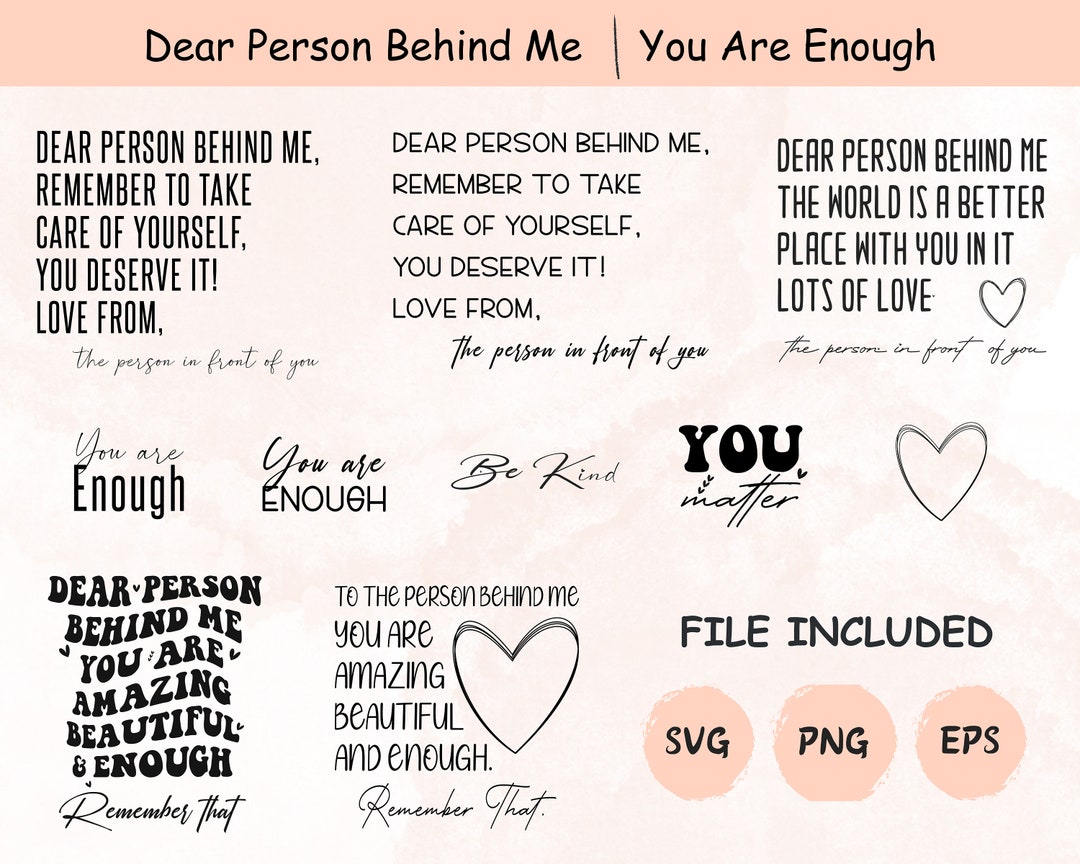 Dear Person Behind Me | You Are Enough
DEAR PERSON BEHIND ME,
REMEMBER TO TAKE
CARE OF YOURSELF,
YOU DESERVE IT!
LOVE FROM,
the person in front of you
DEAR PERSON BEHIND ME,
REMEMBER TO TAKE
CARE OF YOURSELF,
YOU DESERVE IT!
LOVE FROM,
the person in front of you
DEAR PERSON BEHIND ME
THE WORLD IS A BETTER
PLACE WITH YOU IN IT
LOTS OF LOVE
the person in front of you
You are
Enough
You are
ENOUGH
Be Kind
YOU
matter
DEAR PERSON
BEHIND ME
YOU ARE
AMAZING
BEAUTIFUL
& ENOUGH
Remember that
TO THE PERSON BEHIND ME
YOU ARE
AMAZING
BEAUTIFUL
AND ENOUGH.
Remember That.
FILE INCLUDED
SVG
PNG
EPS